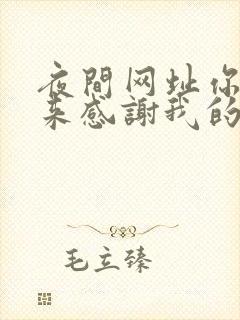 夜間网址你
来感謝我的
毛立臻